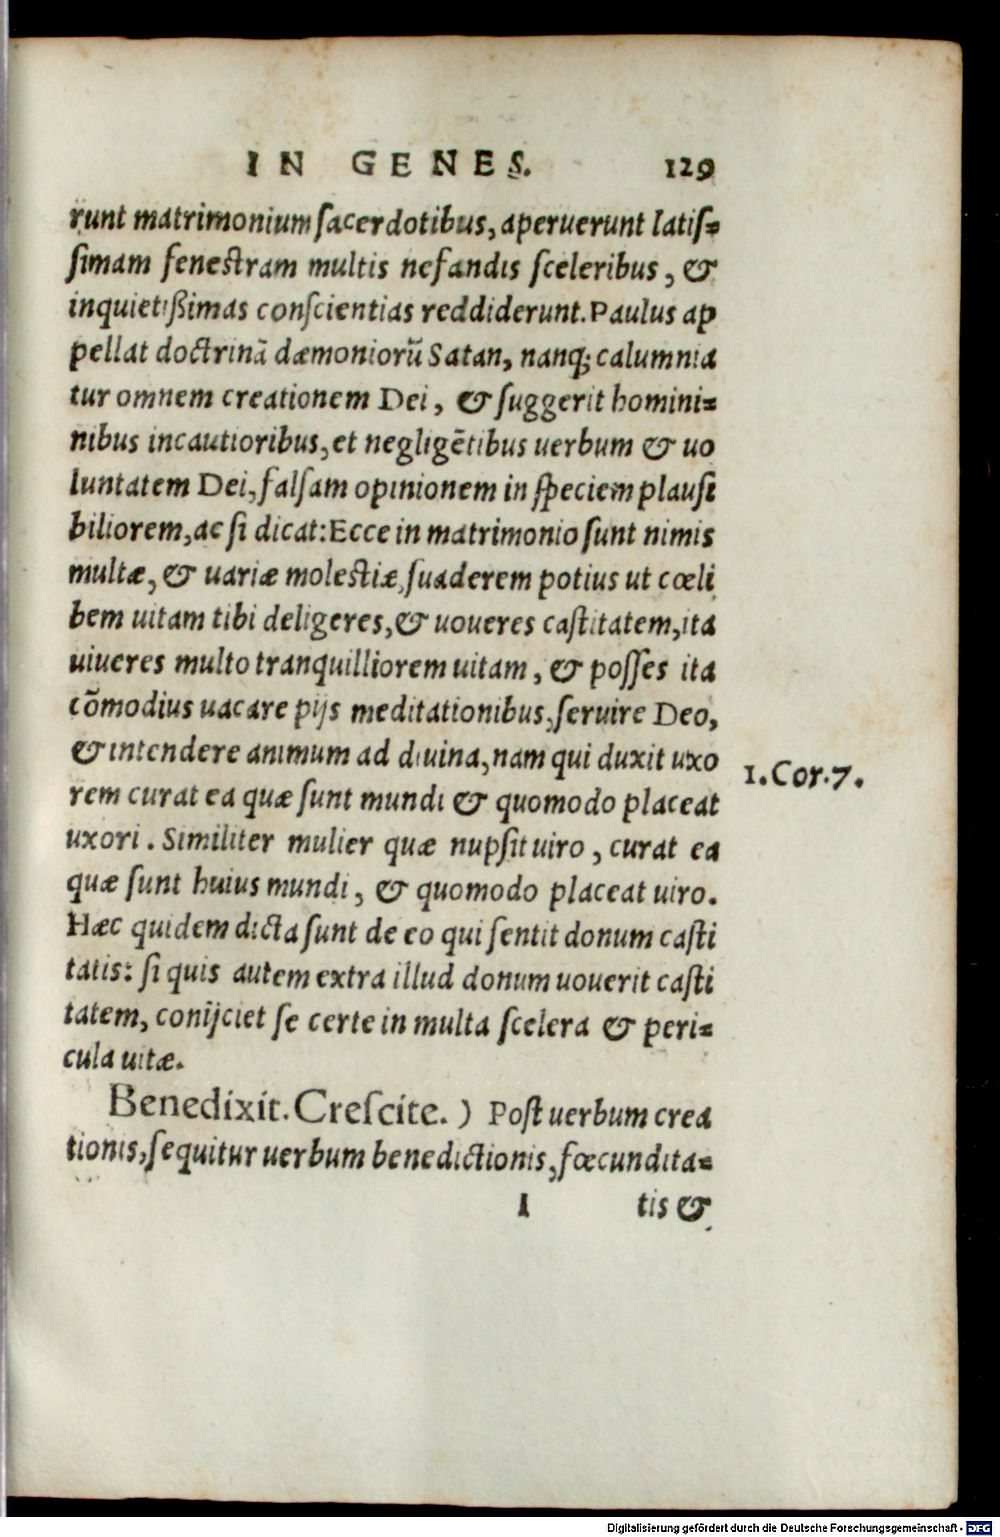 IN GENES. 129
runt matrimonium ſacerdotibus, aperuerunt latiſ=
ſimam feneſtram multis nefandis ſceleribus, &
inquietißimas conſcientias reddiderunt. Paulus ap
pellat doctrinã dæmoniorũ Satan, nanq; calumnia
tur omnem creationem Dei, & ſuggerit homini=
nibus incautioribus, et negligẽtibus uerbum & uo
luntatem Dei, falſam opinionem in ſpeciem plauſi
biliorem, ac ſi dicat: Ecce in matrimonio ſunt nimis
multæ, & uariæ moleſtiæ, ſuaderem potius ut cœli
bem uitam tibi deligeres, & uoueres caſtitatem, ita
uiueres multo tranquilliorem uitam, & poſſes ita
cõmodius uacare pijs meditationibus, ſeruire Deo,
& intendere animum ad diuina, nam qui duxit uxo
1. Cor. 7.
rem curat ea quæ ſunt mundi & quomodo placeat
uxori. Similiter mulier quæ nupſit uiro, curat ea
quæ ſunt huius mundi, & quomodo placeat uiro.
Hæc quidem dicta ſunt de eo qui ſentit donum caſti
tatis: ſi quis autem extra illud donum uouerit caſti
tatem, conijciet ſe certe in multa ſcelera & peri=
cula uitæ.
Benedixit. Creſcite.) Poſt uerbum crea
tionis, ſequitur uerbum benedictionis, fœcundita=
I tis &
Digitalisierung gefördert durch die Deutsche Forschungsgemeinschaft - DFG